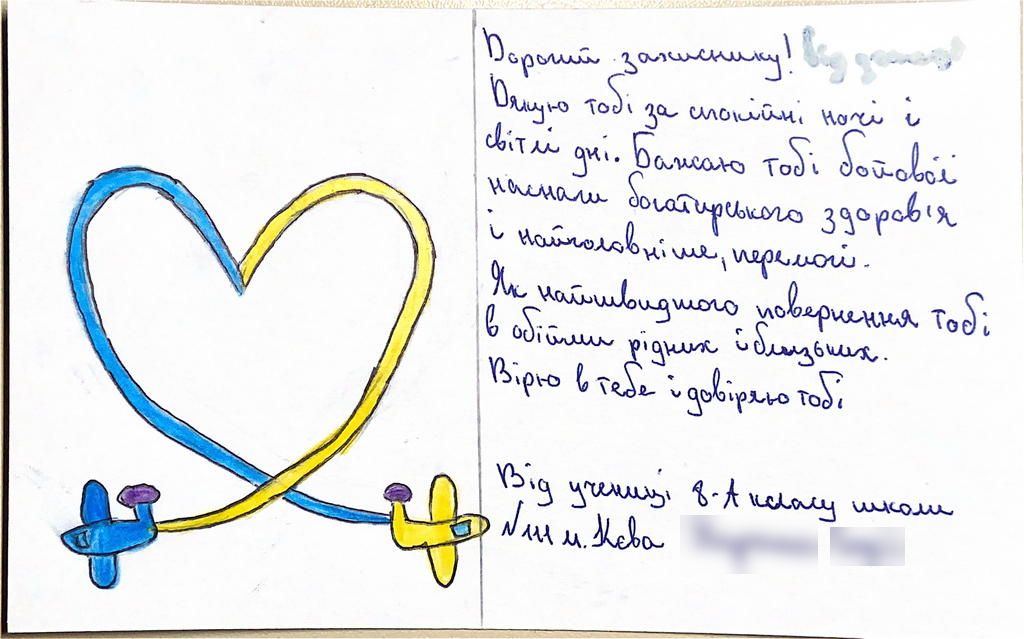 Дорогий захиснику!
Дякую тобі за спокійні ночі і
світлі дні. Бажаю тобі бойової
наснаги богатирського здоров'я
і найголовніше, перемоги.
Як найшвидшого повернення тобі
в обійми рідних і близьких.
Вірю в тебе і довіряю тобі
Від учениці 8-А класу школи
м. Кєва